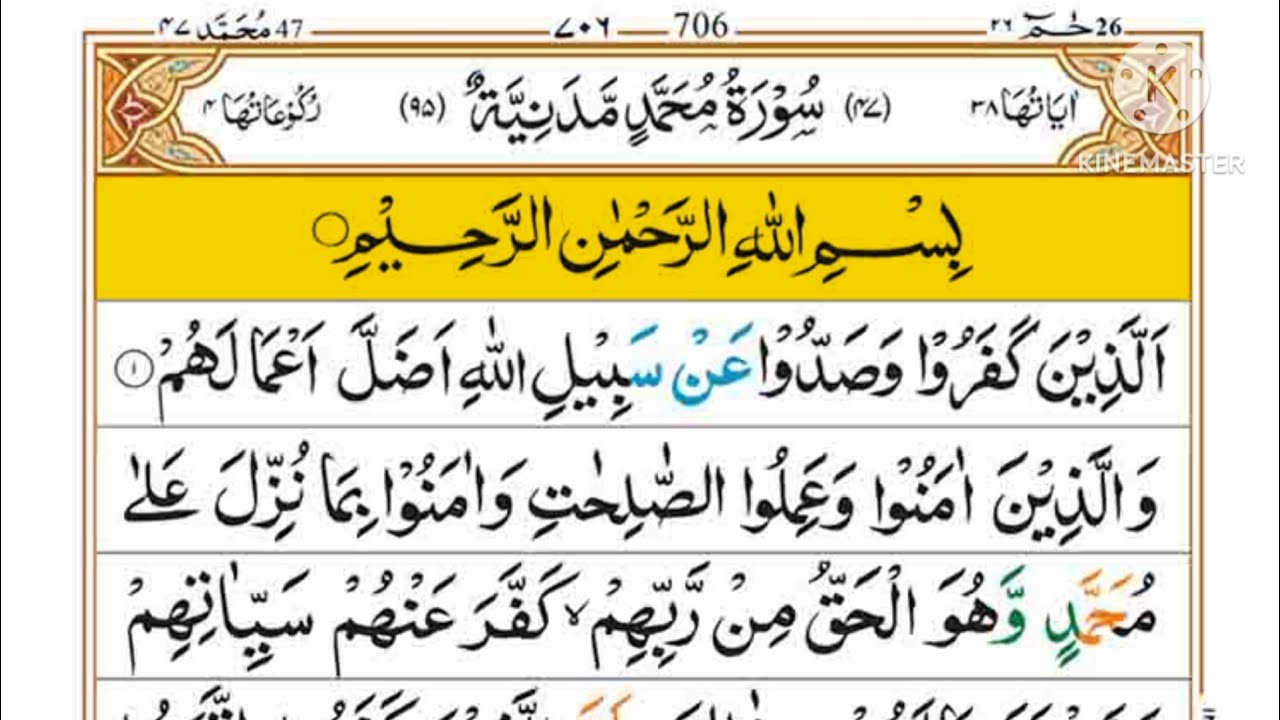 حٰمٓ 26 ٢٦ 706 ٧٠٦ مُحَمَّد 47 ٤٧
اٰيَاتُهَا ٣٨ (٤٧) سُوْرَةُ مُحَمَّدٍ مَّدَنِيَّةٌ (٩٥) رُكُوْعَاتُهَا ٤
KINEMASTER
بِسْمِ اللّٰهِ الرَّحْمٰنِ الرَّحِيْمِ
اَلَّذِيْنَ كَفَرُوْا وَصَدُّوْا عَنْ سَبِيْلِ اللّٰهِ اَضَلَّ اَعْمَالَهُمْ ١
وَالَّذِيْنَ اٰمَنُوْا وَعَمِلُوا الصّٰلِحٰتِ وَاٰمَنُوْا بِمَا نُزِّلَ عَلٰى
مُحَمَّدٍ وَّهُوَ الْحَقُّ مِنْ رَّبِّهِمْ ۙ كَفَّرَ عَنْهُمْ سَيِّاٰتِهِمْ